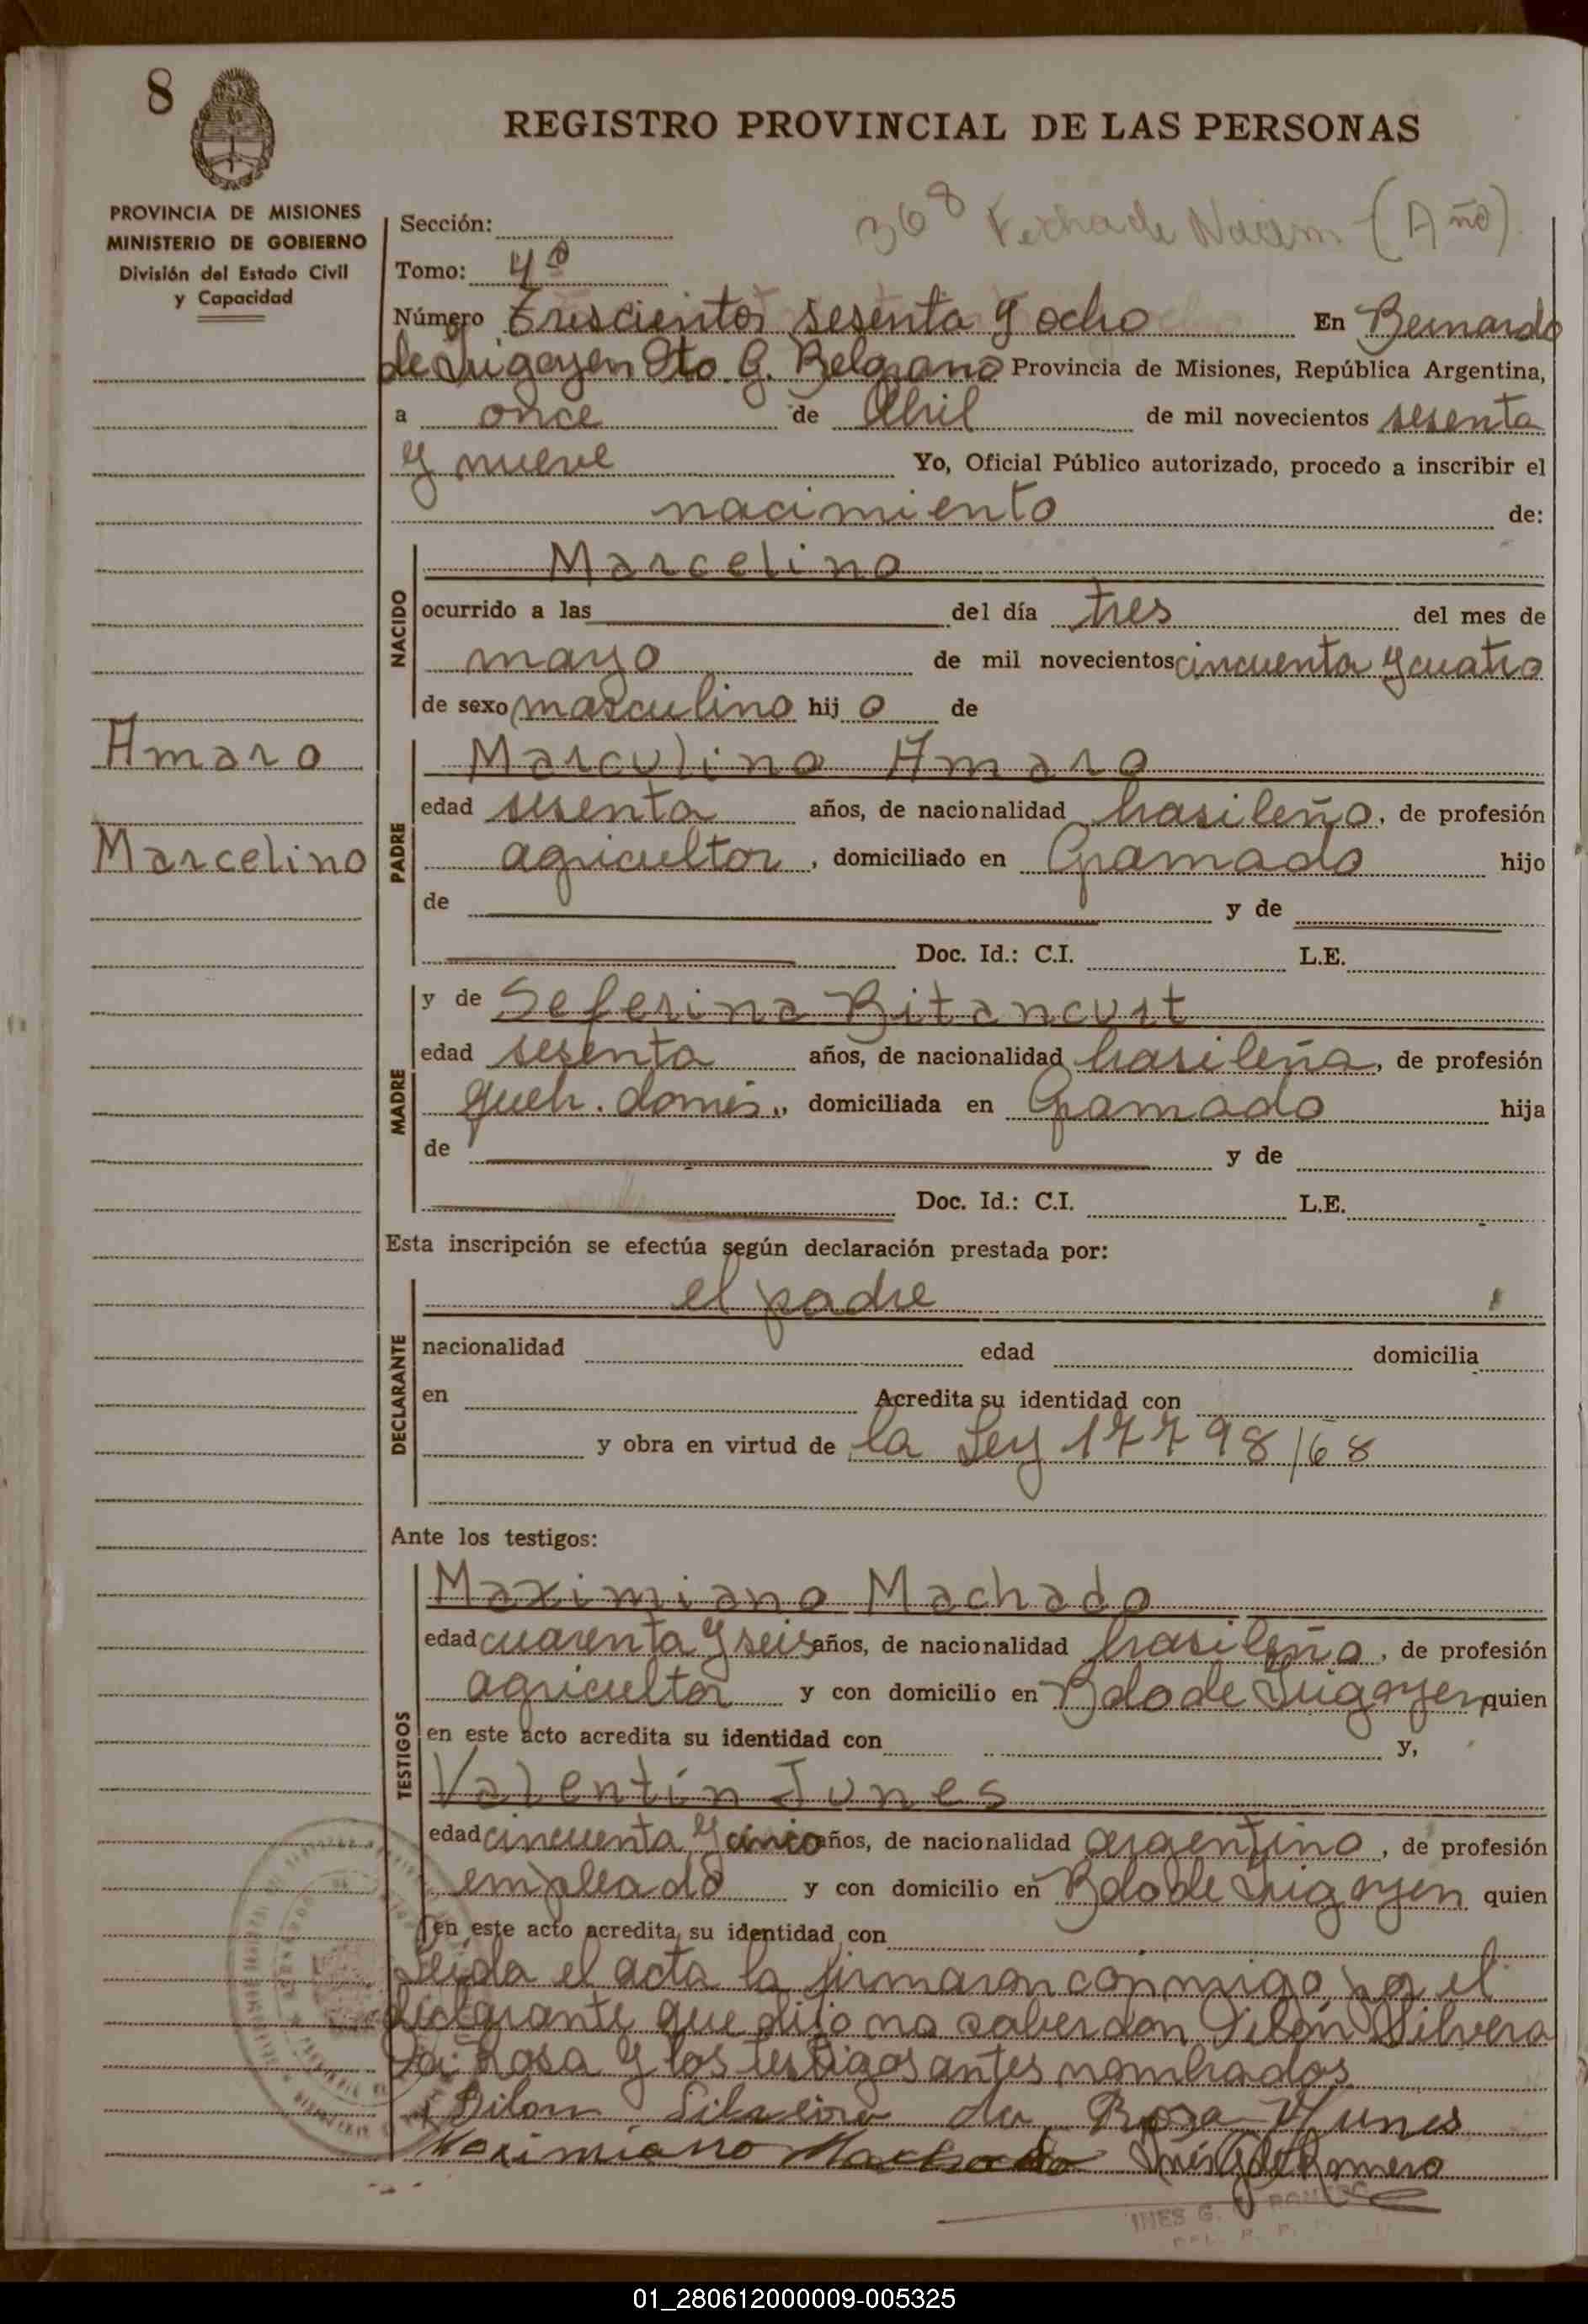 8
REGISTRO PROVINCIAL DE LAS PERSONAS
PROVINCIA DE MISIONES
MINISTERIO DE GOBIERNO
División del Estado Civil
y Capacidad
368 Fecha de Nacim (Año)
Sección:
Tomo: 4º
Número Trescientos sesenta y ocho En Bernardo
de Irigoyen Dto. G. Belgrano Provincia de Misiones, República Argentina,
a once de Abril de mil novecientos sesenta
y nueve Yo, Oficial Público autorizado, procedo a inscribir el
nacimiento de:
NACIDO
Marcelino
ocurrido a las del día tres del mes de
mayo de mil novecientos cincuenta y cuatro
de sexo masculino hij o de
Amaro
Marcelino
PADRE
Marculino Amaro
edad sesenta años, de nacionalidad brasileño, de profesión
agricultor, domiciliado en Gramado hijo
de y de
Doc. Id.: C.I. L.E.
MADRE
y de Seferina Bitancurt
edad sesenta años, de nacionalidad brasileña, de profesión
queh. domés., domiciliada en Gramado hija
de y de
Doc. Id.: C.I. L.E.
Esta inscripción se efectúa según declaración prestada por:
DECLARANTE
el padre
nacionalidad edad domicilia
en Acredita su identidad con
y obra en virtud de la Ley 17798/68
Ante los testigos:
TESTIGOS
Maximiano Machado
edad cuarenta y seis años, de nacionalidad brasileño, de profesión
agricultor y con domicilio en Bdo de Irigoyen quien
en este acto acredita su identidad con y,
Valentín Junes
edad cincuenta y cinco años, de nacionalidad argentino, de profesión
empleado y con domicilio en Bdo de Irigoyen quien
en este acto acredita su identidad con
Leída el acta la firmaron conmigo, por el
declarante que dijo no saber don Dilon Silvera
da Rosa y los testigos antes nombrados
Dilon Silveira da Rosa V Junes
Maximiano Machado Inés G de Romero
INES G. ROMERO
01_280612000009-005325